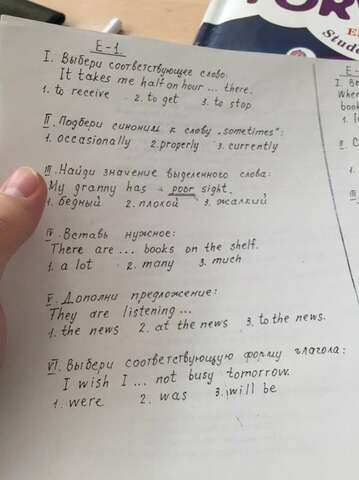 E-1.
I. Выбери соответствующее слово:
It takes me half an hour ... there.
1. to receive 2. to get 3. to stop
II. Подбери синоним к слову „sometimes":
1. occasionally 2. properly 3. currently
III. Найди значение выделенного слова:
My granny has poor sight.
1. бедный 2. плохой 3. жалкий
IV. Вставь нужное:
There are ... books on the shelf.
1. a lot 2. many 3. much
V. Дополни предложение:
They are listening ...
1. the news 2. at the news 3. to the news.
VI. Выбери соответствующую форму глагола:
I wish I ... not busy tomorrow.
1. were 2. was 3. will be